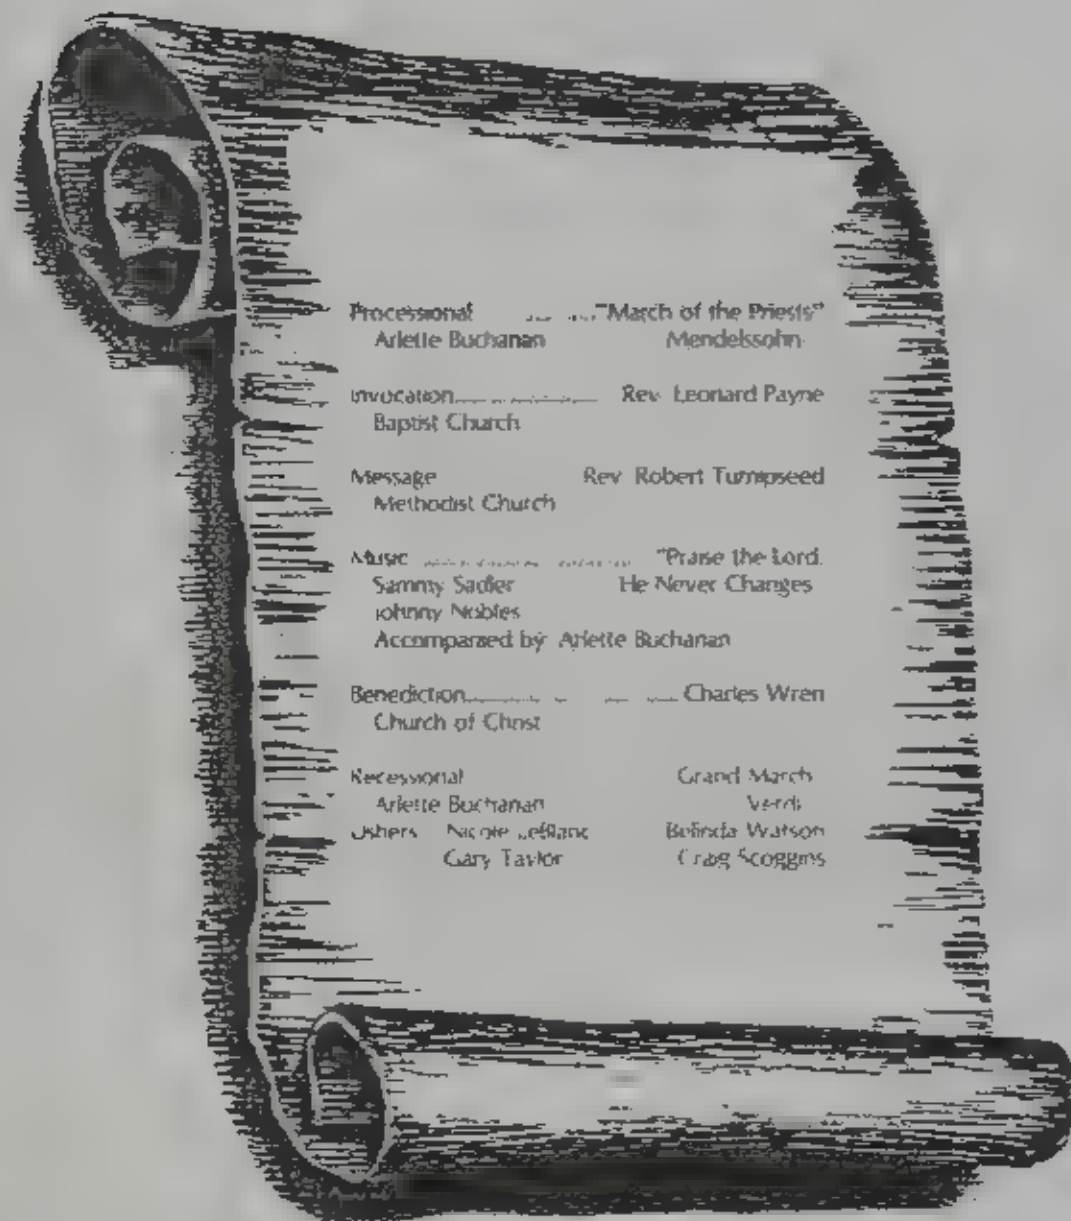 Processional ........ "March of the Priests"
Arlette Buchanan Mendelssohn
Invocation........ Rev. Leonard Payne
Baptist Church
Message Rev. Robert Turnipseed
Methodist Church
Music ........ "Praise the Lord,
Sammy Sadler He Never Changes
Johnny Nobles
Accompanied by Arlette Buchanan
Benediction........ Charles Wren
Church of Christ
Recessional Grand March
Arlette Buchanan Verdi
Ushers Nicole LeBlanc Belinda Watson
Gary Taylor Craig Scoggins